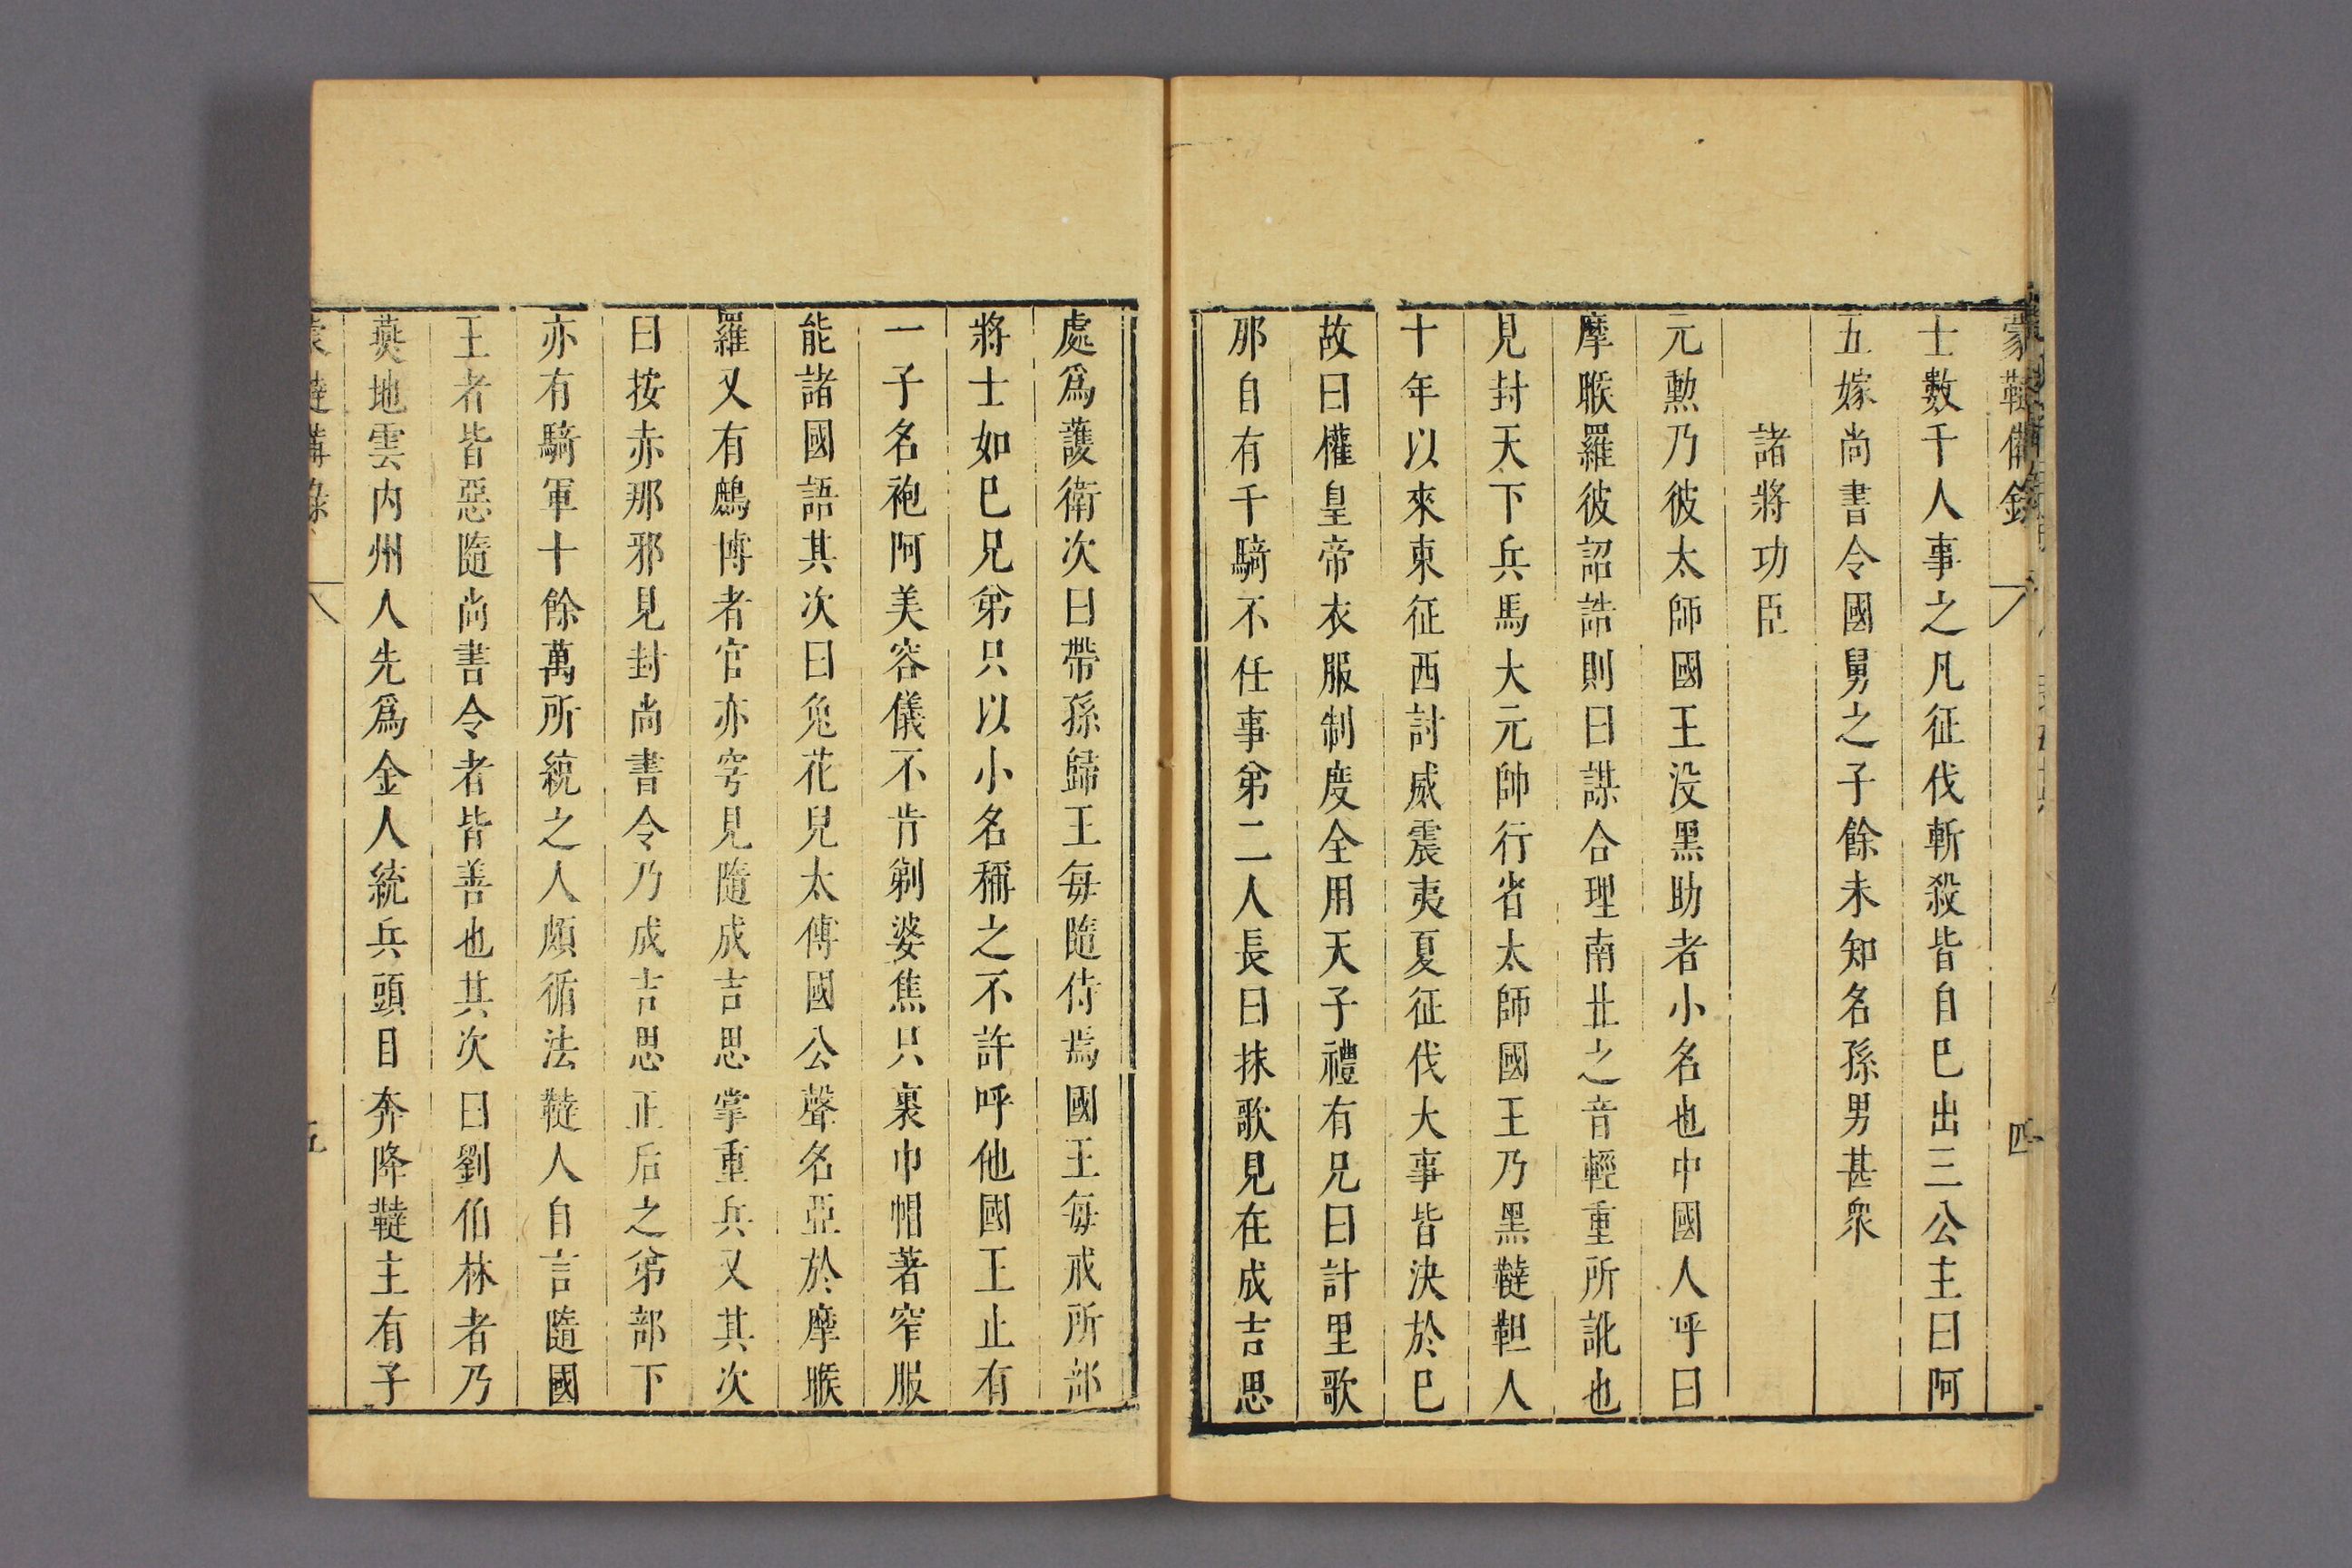 蒙韃備錄 四
士數千人事之凡征伐斬殺皆自巳出三公主曰阿
五嫁尚書令國舅之子餘未知名孫男甚衆
諸將功臣
元勲乃彼太師國王没黑助者小名也中國人呼曰
摩睺羅彼詔誥則曰謀合理南北之音輕重所訛也
見封天下兵馬大元帥行省太師國王乃黑韃靼人
十年以來東征西討威震夷夏征伐大事皆決於巳
故曰權皇帝衣服制度全用天子禮有兄曰計里歌
那自有千騎不任事弟二人長曰抹歌見在成吉思
處爲護衛次曰帶孫歸王每隨侍焉國王每戒所部
將士如巳兄弟只以小名稱之不許呼他國王止有
一子名袍阿美容儀不肯剃婆焦只裹巾帽著窄服
能諸國語其次曰兎花兒太傅國公聲名亞於摩睺
羅又有鷓博者官亦穹見隨成吉思掌重兵又其次
曰按赤那邪見封尚書令乃成吉思正后之弟部下
亦有騎軍十餘萬所統之人頗循法韃人自言隨國
王者皆惡隨尚書令者皆善也其次曰劉伯林者乃
燕地雲内州人先爲金人統兵頭目奔降韃主有子